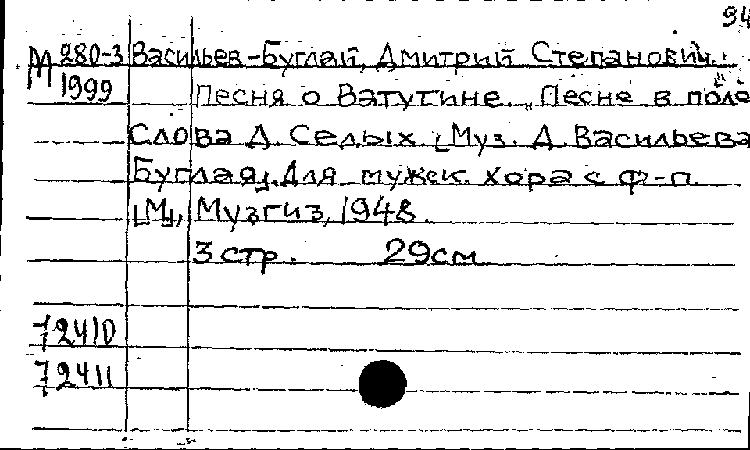 94
М 280-3 Васильев-Буглай, Дмитрий Степанович.
1999 Песня о Ватутине. "Песне в поле"
Слова Д. Седых [Муз. Д. Васильева
Буглая]. Для мужск. хора с ф-п.
[М], Музгиз, 1948.
3 стр. 29см
72410
72411